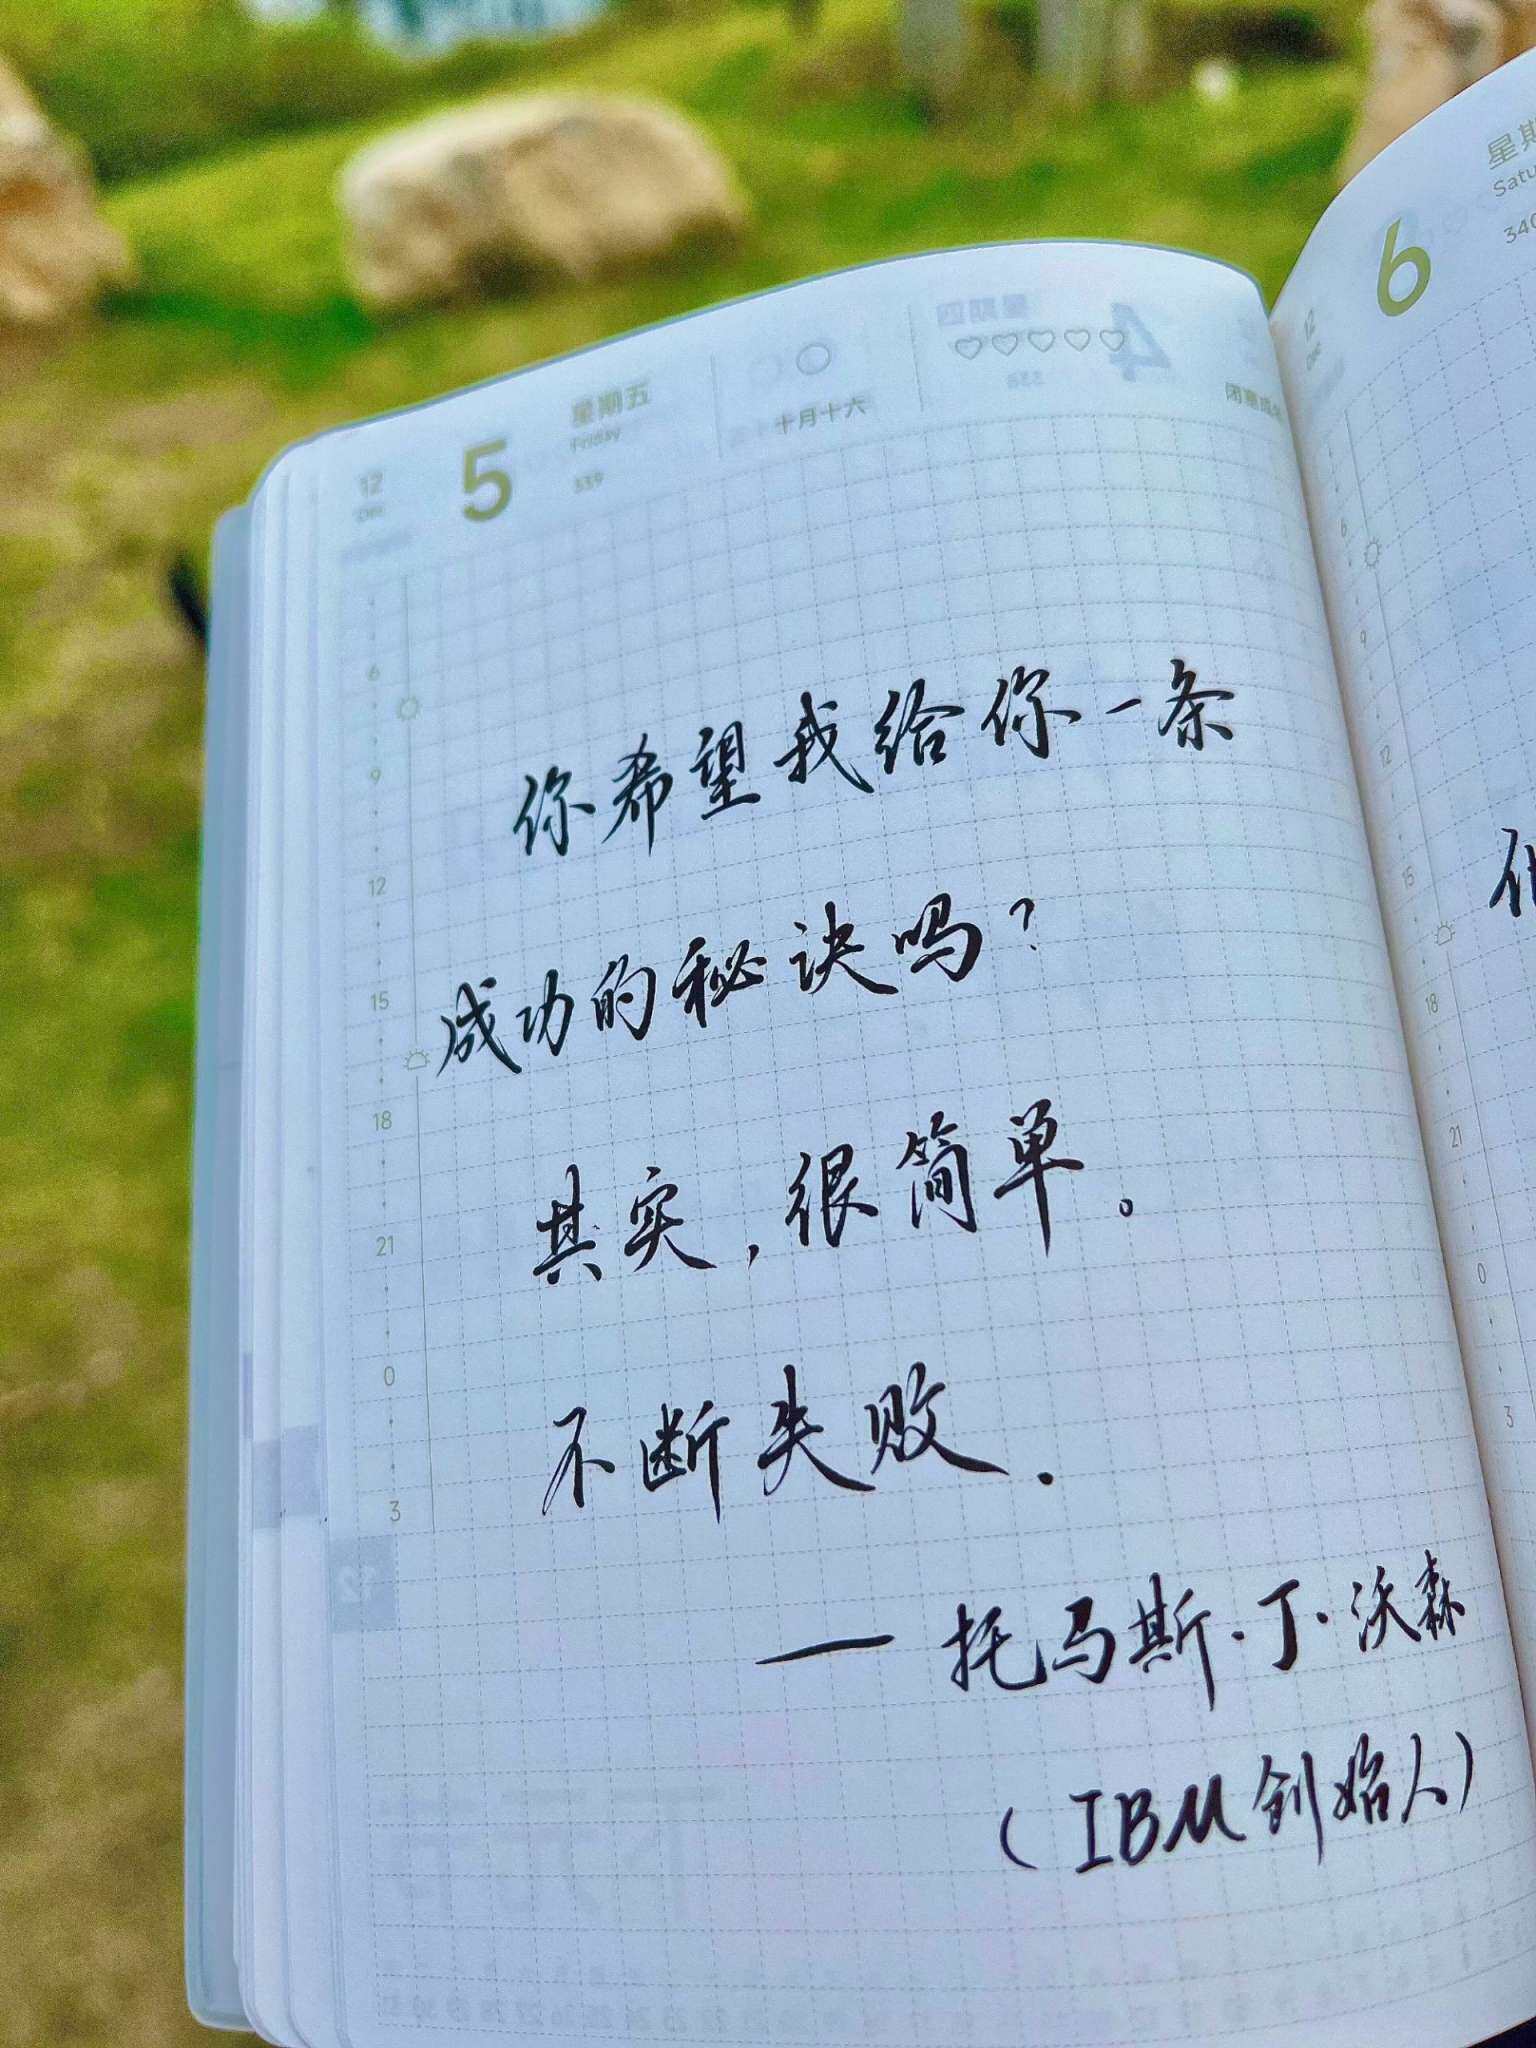 12
Dec
5
星期五
Friday
339
十月十六
6
9
12
15
18
21
0
3
12
你希望我给你一条
成功的秘诀吗？
其实，很简单。
不断失败.
—托马斯·丁·沃森
(IBM创始人)
12
Dec
6
星期
Satu
340
6
9
12
15
18
21
0
3